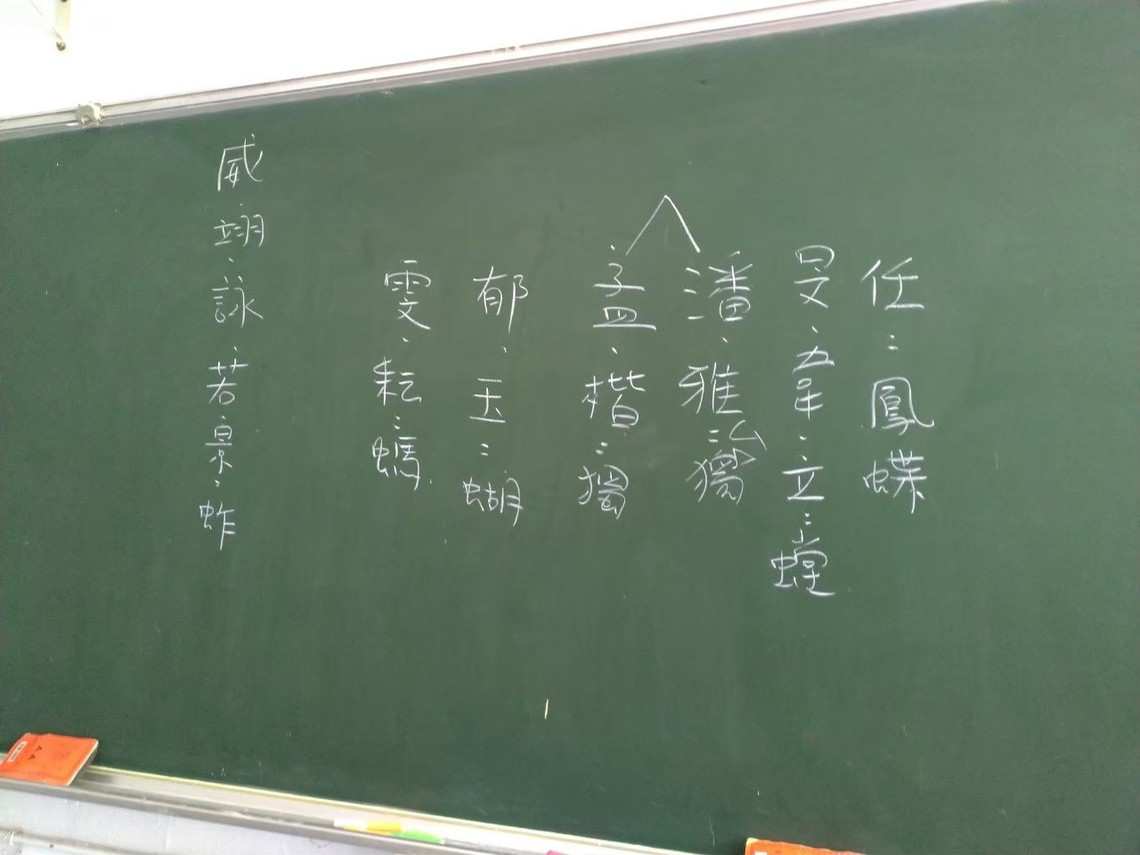 任：鳳蝶
旻、五年、立：螳
潘、雅：獨
孟、楷：獨
郁、玉：蝴
雯、耘：螞
威、翊、詠、若、景：蚱